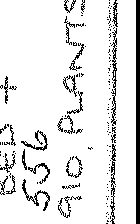 BED +
556
910 PLANTS